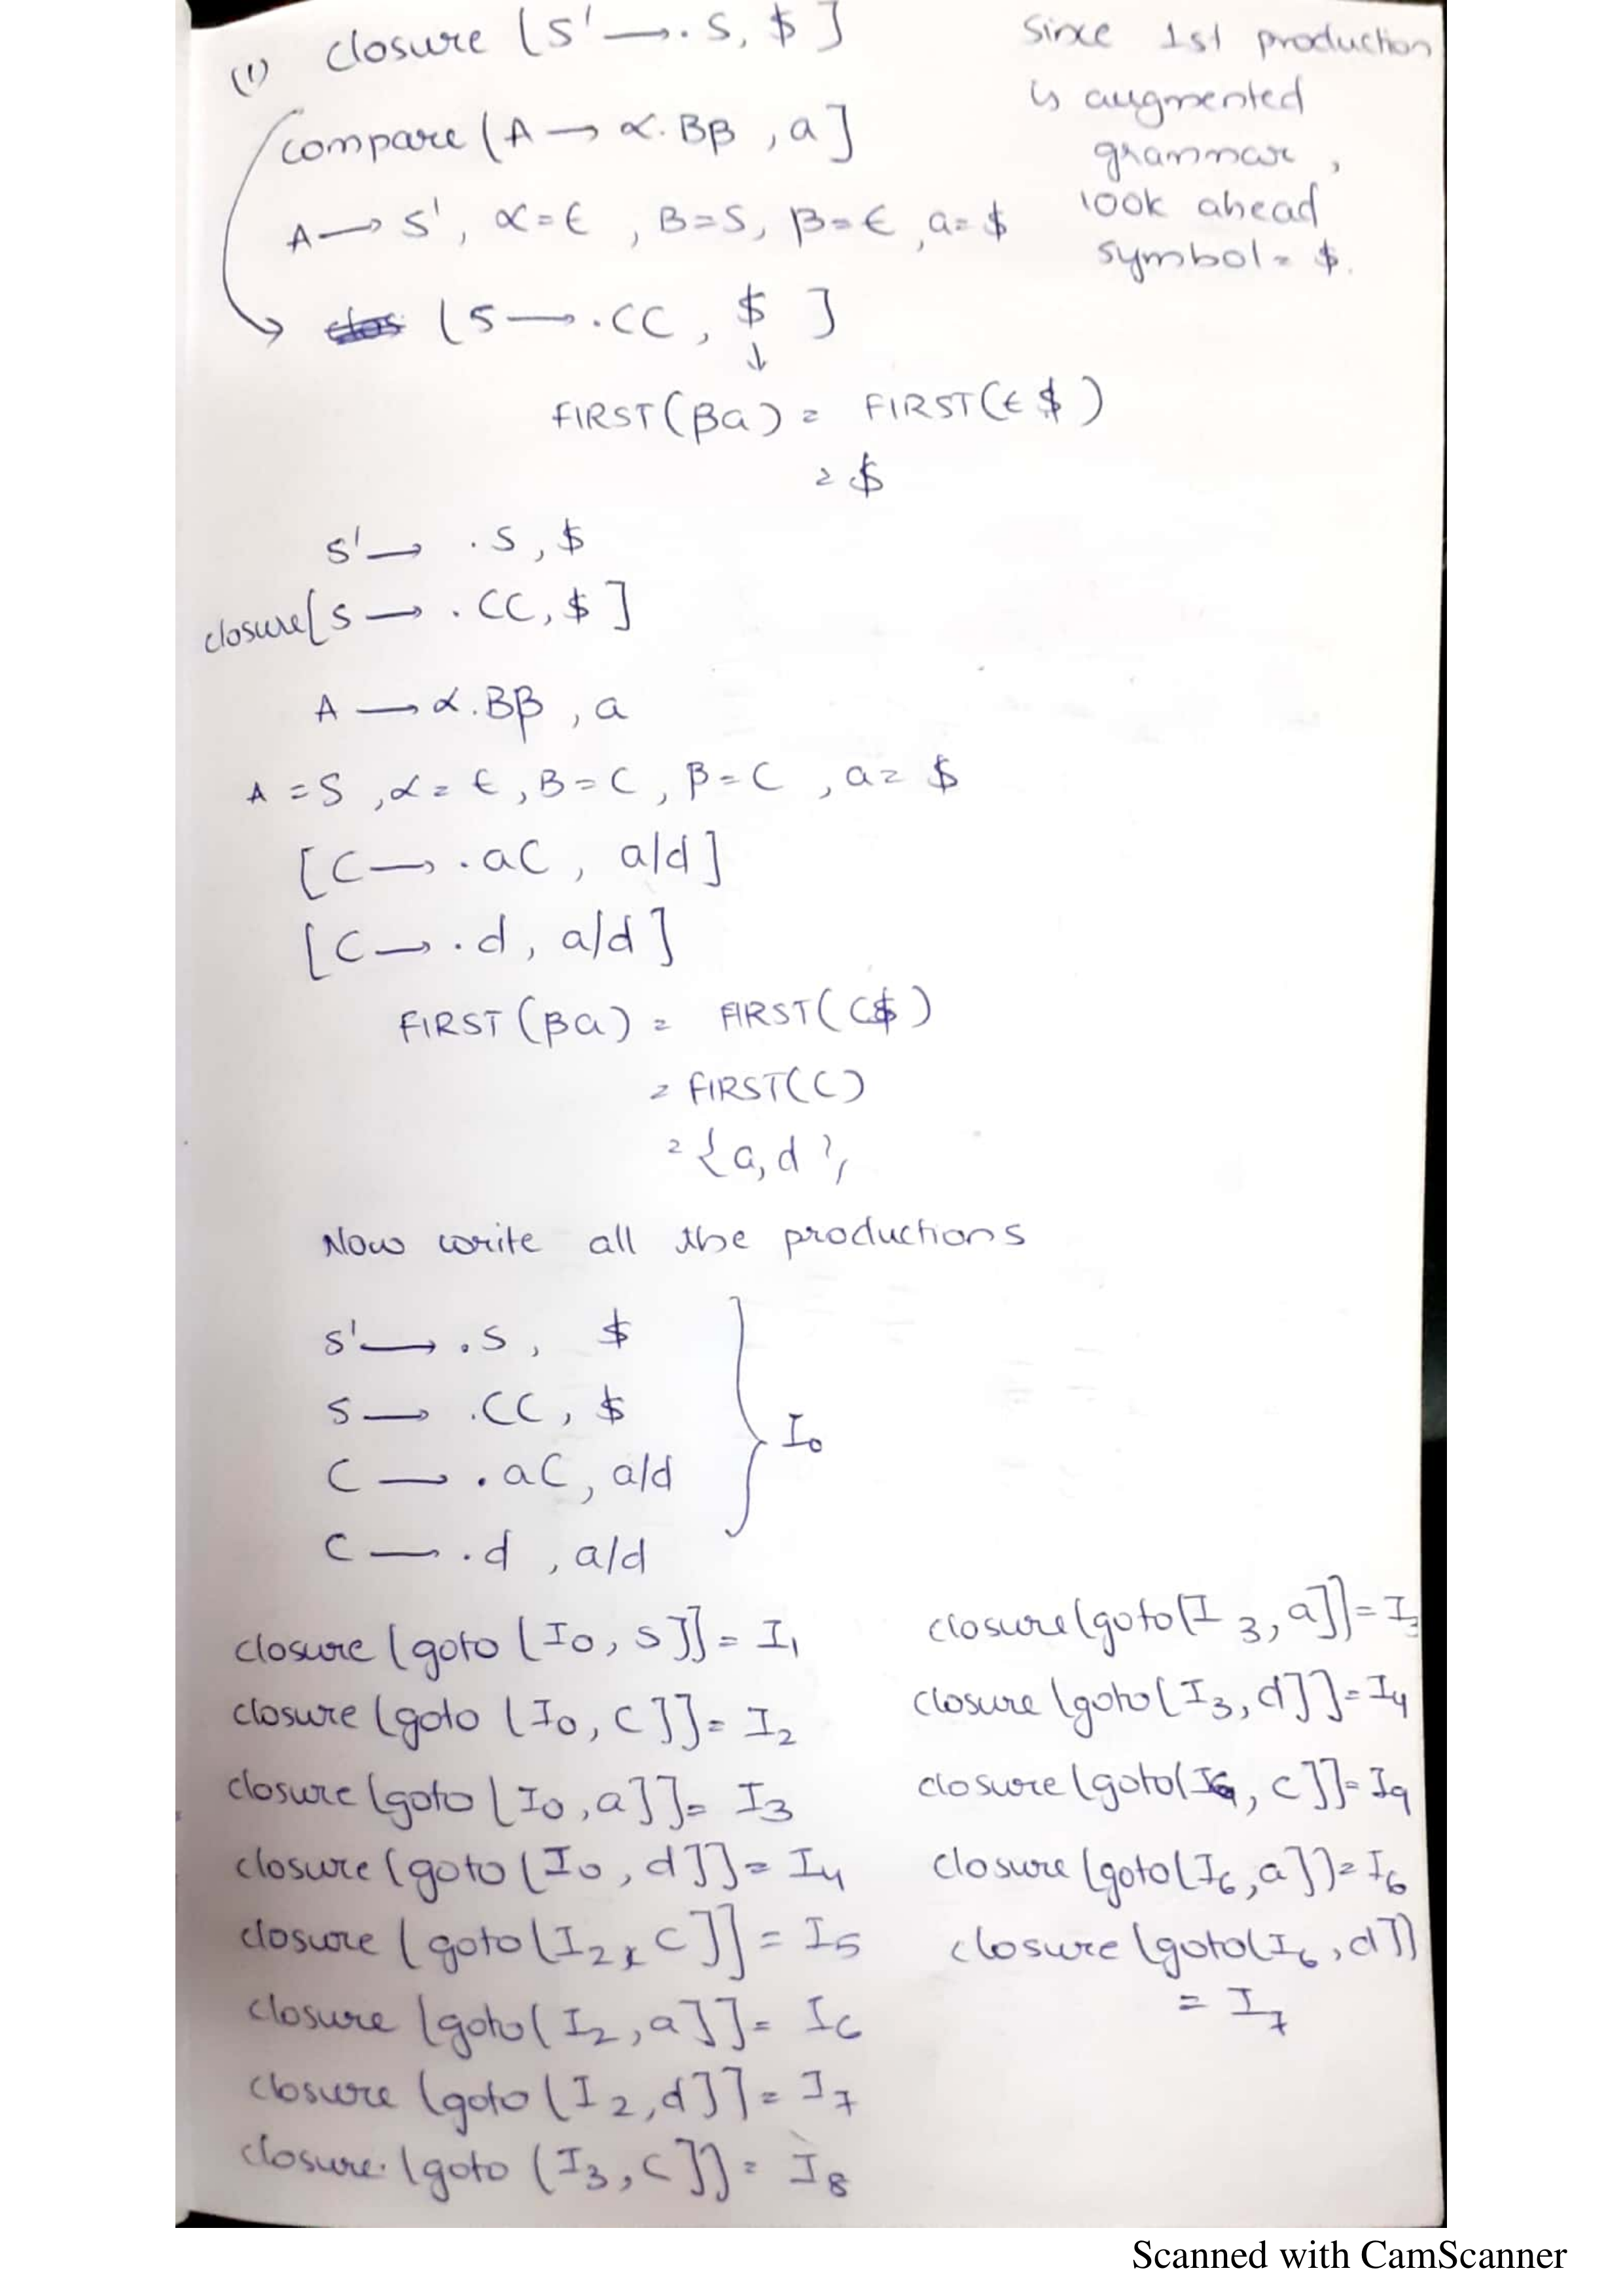 (1) closure [S' → .S, $]
Since 1st production
is augmented
grammar,
look ahead
symbol = $.
compare [A → α.Bβ, a]
A → S', α = ε, B = S, β = ε, a = $
[S → .CC, $]
↓
FIRST(βa) = FIRST(ε$)
= $
S' → .S, $
closure[S → .CC, $]
A → α.Bβ, a
A = S, α = ε, B = C, β = C, a = $
[C → .aC, a/d]
[C → .d, a/d]
FIRST(βa) = FIRST(C$)
= FIRST(C)
= {a,d}
Now write all the productions
S' → .S, $
S → .CC, $
I₀
C → .aC, a/d
C → .d, a/d
closure [goto [I₀, S]] = I₁
closure [goto [I₀, C]] = I₂
closure [goto [I₀, a]] = I₃
closure [goto [I₀, d]] = I₄
closure [goto [I₂, C]] = I₅
closure [goto [I₂, a]] = I₆
closure [goto [I₂, d]] = I₇
closure [goto [I₃, C]] = I₈
closure [goto [I₃, a]] = I₃
closure [goto [I₃, d]] = I₄
closure [goto [I₆, C]] = I₉
closure [goto [I₆, a]] = I₆
closure [goto [I₆, d]]
= I₇
Scanned with CamScanner